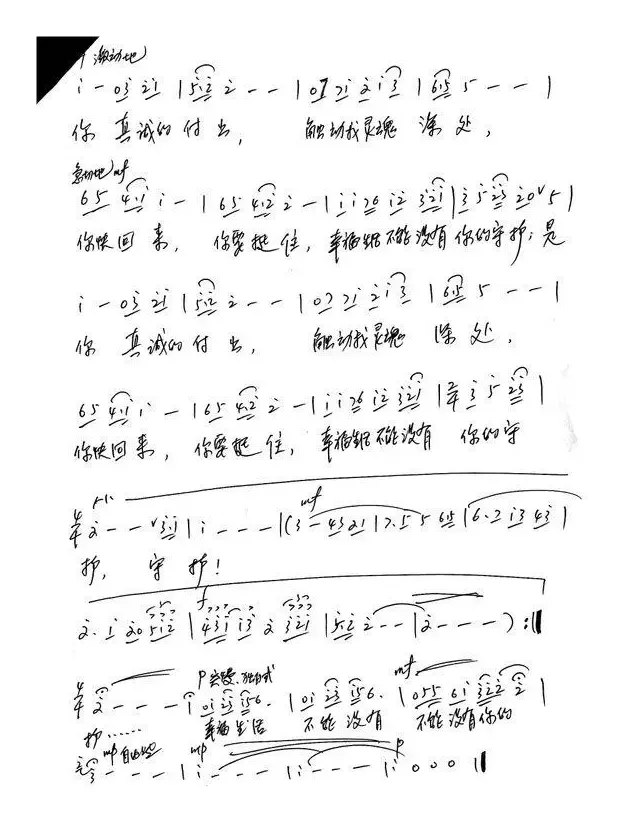 f 激动地
i - 03 21 | 5·12 2 - - | 07 71 2 13 | 6·5 5 - - |
你 真诚的付出， 触动我灵魂 深处，
急切地 mf
65 4·1 i - | 65 4·2 2 - | i i 76 12 321 | 3 5 23 20 ∨ 5 |
你快回来， 你要挺住， 幸福生活不能没有你的守护；是
i - 03 21 | 5·12 2 - - | 07 71 2 13 | 6·5 5 - - |
你 真诚的付出， 触动我灵魂 深处，
65 4·1 i - | 65 4·2 2 - | i i 76 12 321 | 2/4 3 5 23 |
你快回来， 你要挺住， 幸福生活不能没有 你的守
mf
4/4 2 - - ∨ 3·1 | i - - - | (3 - 43 21 | 7·5 5 65 | 6·2 13 43 |
护， 守 护！
f
2· 1 20 512 | 431 13 2 321 | 5·2 2 - - | 2 - - - ) :||
p mf
4/4 2 - - - | 01 23 156· | 01 23 156· | 055 61 322 2 |
护…… 幸福生活 不能没有 不能没有你的
mp 自由地 mp p
3 - - - | i - - - | i - - - | i 0 0 0 ||